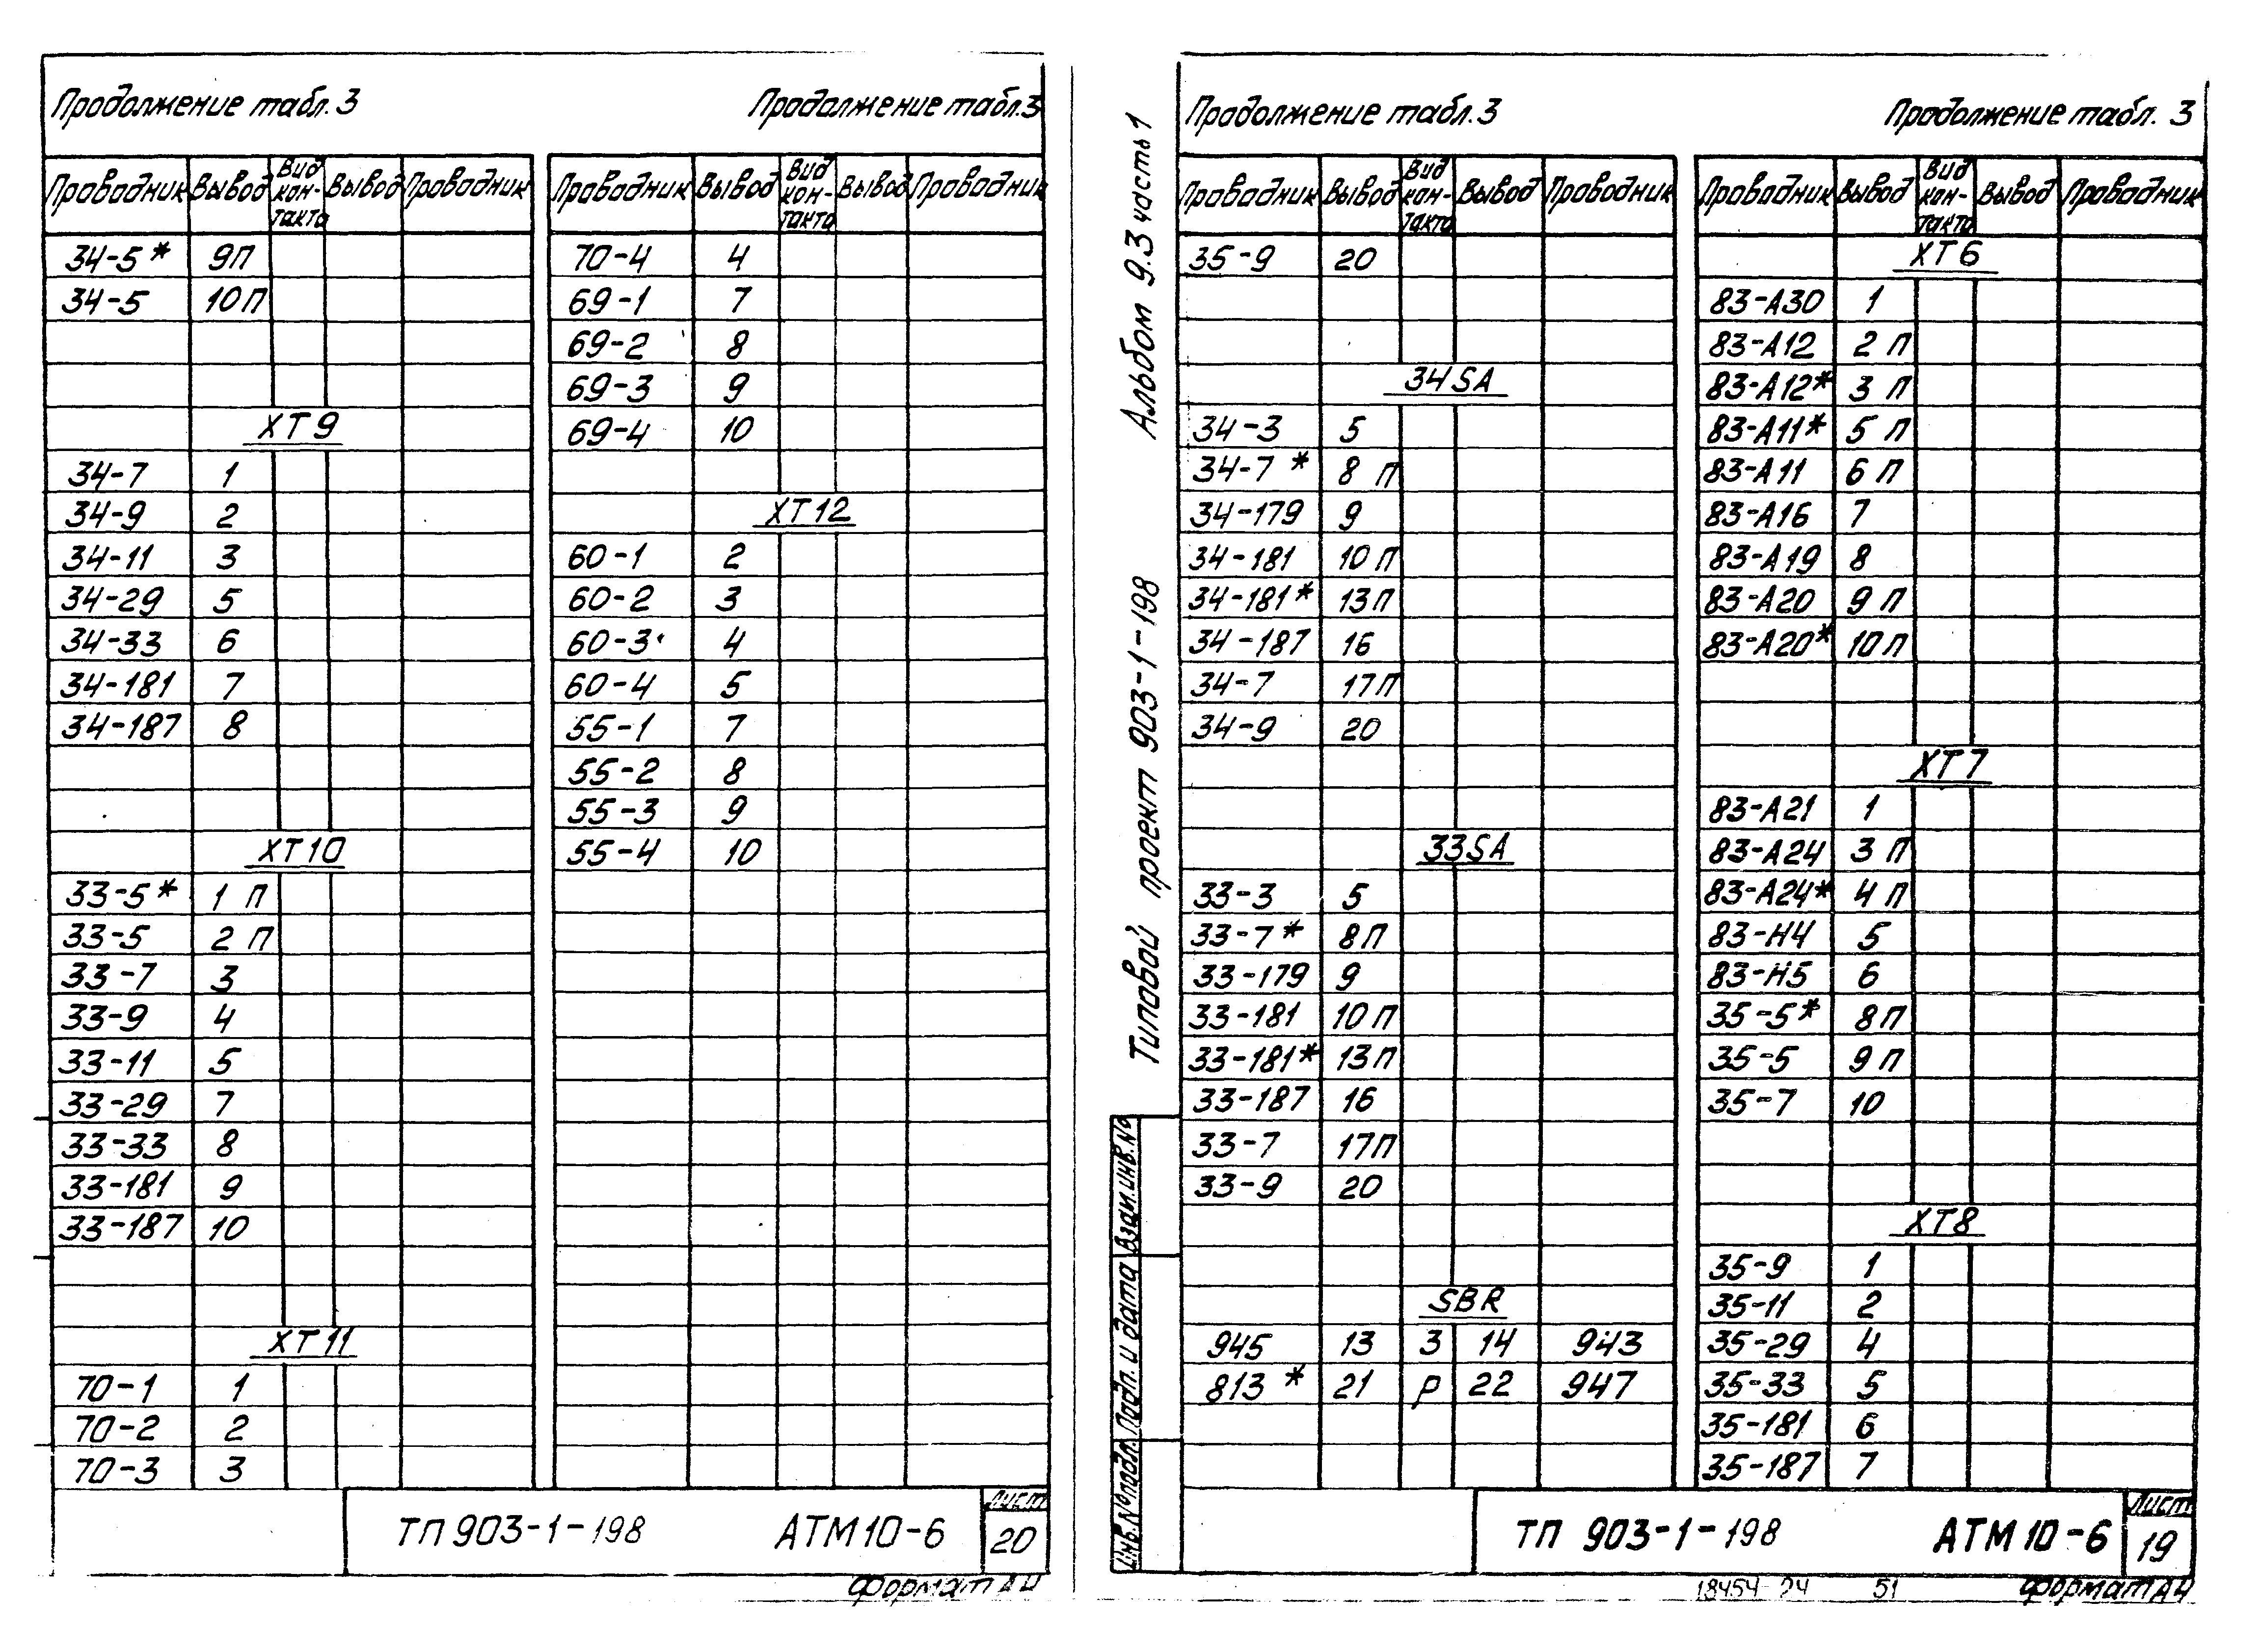 Продолжение табл. 3
Продолжение табл. 3
Проводник Вывод Вид контакта Вывод Проводник
34-5* 9П
34-5 10П
XT9
34-7 1
34-9 2
34-11 3
34-29 5
34-33 6
34-181 7
34-187 8
XT10
33-5* 1 П
33-5 2 П
33-7 3
33-9 4
33-11 5
33-29 7
33-33 8
33-181 9
33-187 10
XT11
70-1 1
70-2 2
70-3 3
Проводник Вывод Вид контакта Вывод Проводник
70-4 4
69-1 7
69-2 8
69-3 9
69-4 10
XT12
60-1 2
60-2 3
60-3 4
60-4 5
55-1 7
55-2 8
55-3 9
55-4 10
ТП 903-1-198 АТМ10-6
Лист
20
Формат А4
Альбом 9.3 часть 1
Типовой проект 903-1-198
Взам.инв.№
Подп. и дата
Инв.№ подл.
Продолжение табл. 3
Продолжение табл. 3
Проводник Вывод Вид контакта Вывод Проводник
35-9 20
34SA
34-3 5
34-7 * 8 П
34-179 9
34-181 10 П
34-181* 13П
34-187 16
34-7 17П
34-9 20
33SA
33-3 5
33-7 * 8П
33-179 9
33-181 10 П
33-181* 13П
33-187 16
33-7 17П
33-9 20
SBR
945 13 З 14 943
813 * 21 Р 22 947
Проводник Вывод Вид контакта Вывод Проводник
XT6
83-A30 1
83-A12 2 П
83-A12* 3 П
83-A11* 5 П
83-A11 6 П
83-A16 7
83-A19 8
83-A20 9 П
83-A20* 10 П
XT7
83-A21 1
83-A24 3 П
83-A24* 4 П
83-Н4 5
83-Н5 6
35-5* 8П
35-5 9 П
35-7 10
XT8
35-9 1
35-11 2
35-29 4
35-33 5
35-181 6
35-187 7
ТП 903-1-198 АТМ10-6
Лист
19
18454-24 51 Формат А4